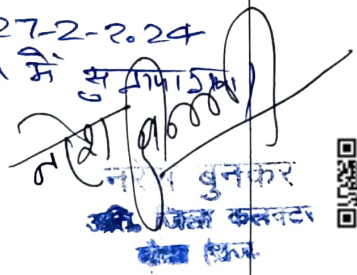 27-2-2024
में सुनाया गया
नरेश बुनकर
अति. जिला कलक्टर